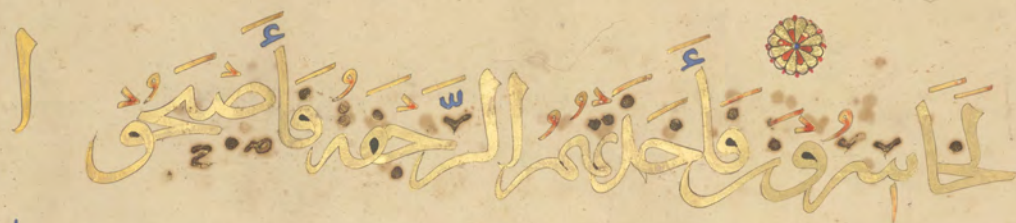 لَخَاسِرُونَ فَأَخَذَتْهُمُ الرَّجْفَةُ فَأَصْبَحُوا